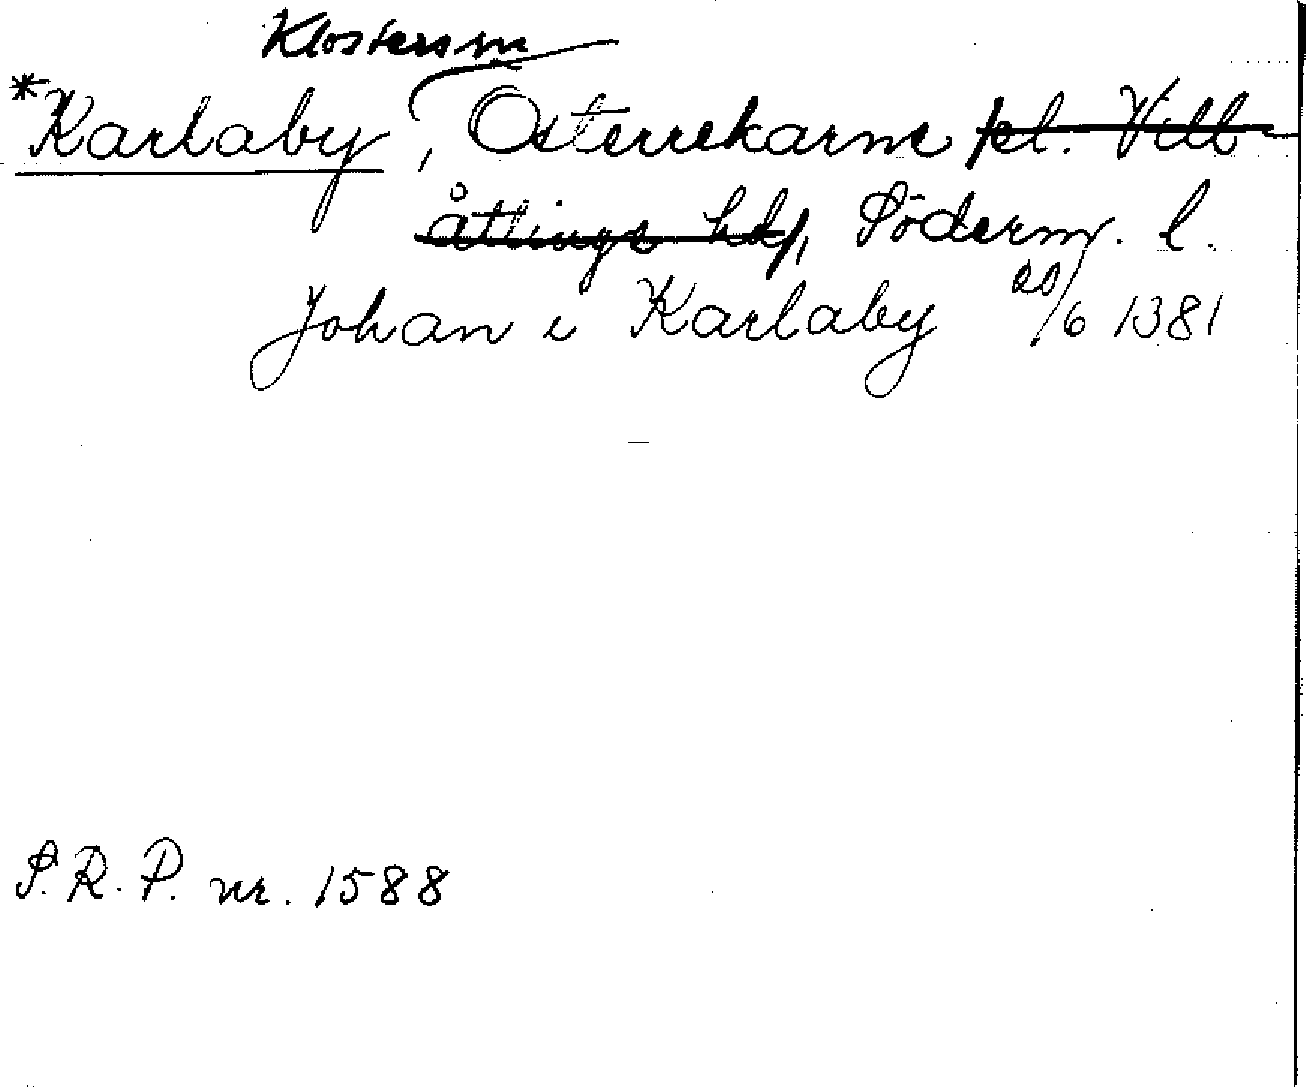 Klosters sn
*Karlaby, Österrekarne pl. Vill-
åttinge hd, Söderm. l.
Johan i Karlaby 20/6 1381
S.R.P. nr. 1588